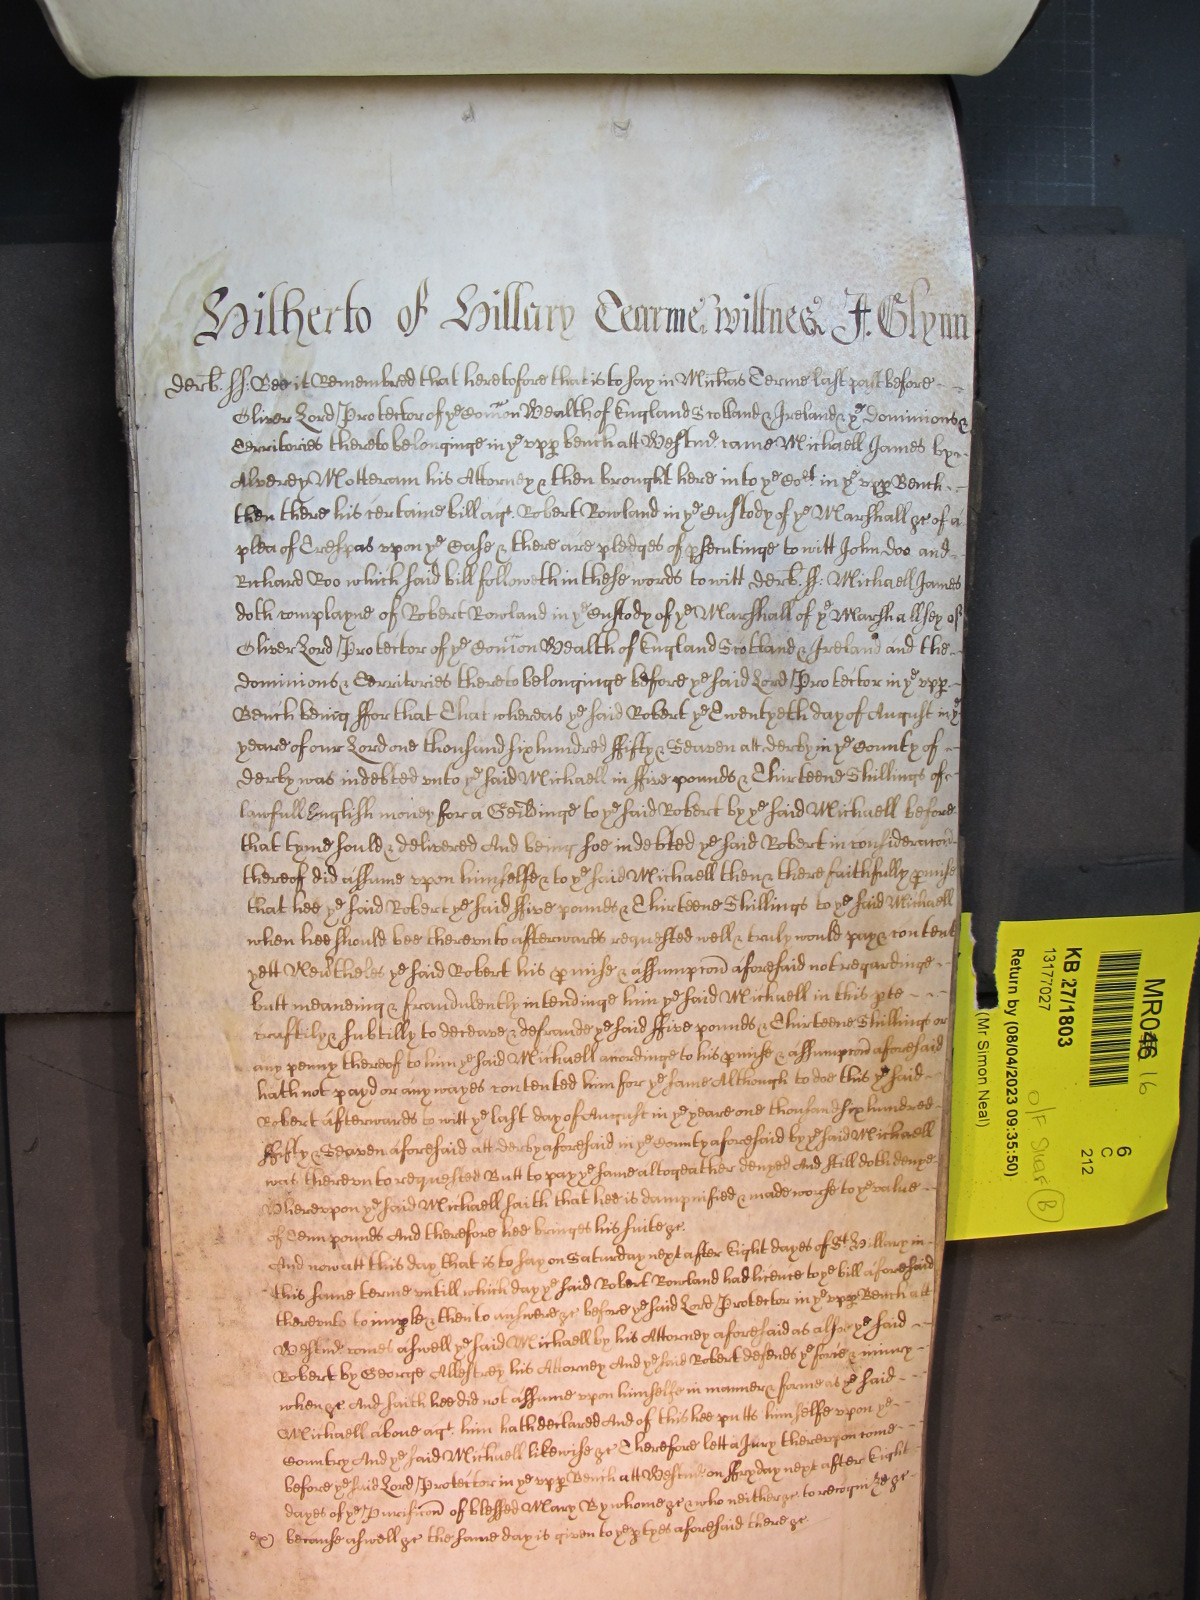 Hitherto of Hillary Tearme. wittnes J. Glynn
Derb. ss: Bee it Remembred that heretofore that is to say in Michas Terme last past before
Oliver Lord Protector of ye Comon Wealth of England Scotland & Ireland & ye Dominions &
Territories thereto belonginge in ye upp bench att Westmr. came Michaell James by
Alverey Motteram his Attorney & then brought here into ye Cort. in ye upp Bench
then there his certaine bill agt. Robert Rowland in ye Custody of ye Marshall &c of a
plea of Trespas upon ye Case & there are pledges of psecutinge to witt John Doo and
Richard Roo which said bill followeth in these words to witt Derb. ss: Michaell James
doth complayne of Robert Rowland in ye Custody of ye Marshall of ye Marshallsey of
Oliver Lord Protector of ye Comon Wealth of England Scotland & Ireland and the
Dominions & Territories thereto belonginge before ye said Lord Protector in ye upp
Bench being ffor that That whereas ye said Robert ye Twentyeth day of August in ye
yeare of our Lord one thousand six hundred ffifty & Seaven att Derby in ye County of
Derby was indebted unto ye said Michaell in ffive pounds & Thirteene Shillings of
lawfull English money for a Geldinge to ye said Robert by ye said Michaell before
that tyme sould & delivered And being soe indebted ye said Robert in consideracon
thereof did assume upon himselfe & to ye said Michaell then & there faithfully pmise
that hee ye said Robert ye said ffive pounds & Thirteene Shillings to ye said Michaell
when hee should bee thereunto afterwards requested well & truly would pay & content
yett Nevrtheles ye said Robert his pmise & assumpcon aforesaid not regardinge
butt meaneing & fraudulently intendinge him ye said Michaell in this pte
craftily & subtilly to deceave & defraude ye said ffive pounds & Thirteene Shillings or
any penny thereof to him ye said Michaell accordinge to his pmise & assumpcon aforesaid
hath not payd or any wayes contented him for ye same Although to doe this ye said
Robert afterwards to witt ye last day of August in ye yeare one thousand six hundred
ffifty & Seaven aforesaid att Derby aforesaid in ye County aforesaid by ye said Michaell
was thereunto requested Butt to pay ye same altogeather denyed And still doth denye
Whereupon ye said Michaell saith that hee is dampnified & made worse to ye value
of Tenn pounds And therefore hee bringes his suite &c.
And now att this day that is to say on Saturday next after Eight dayes of St. Hillary in
this same terme untill which day ye said Robert Rowland had licence to ye bill aforesaid
thereunto to imple & then to answere &c before ye said Lord Protector in ye upp Bench att
Westmr. comes aswell ye said Michaell by his Attorney aforesaid as alsoe ye said
Robert by George Allestrey his Attorney And ye said Robert defends ye force & injury
when &c And saith hee did not assume upon himselfe in manner & forme as ye said
Michaell above agt. him hath declared And of this hee putts himselfe upon ye
Country And ye said Michaell likewise &c Therefore lett a Jury thereupon come
before ye said Lord Protector in ye upp Bench att Westmr on ffryday next after Eight
dayes of ye Purificon of blessed Mary By whome &c & who neither &c to recognize &c
because aswell &c the same day is given to ye ptyes aforesaid there &c
MR046 16
6
C
212
KB 27/1803
13177027
O/F Shelf B
Return by (08/04/2023 09:35:50)
(Mr Simon Neal)